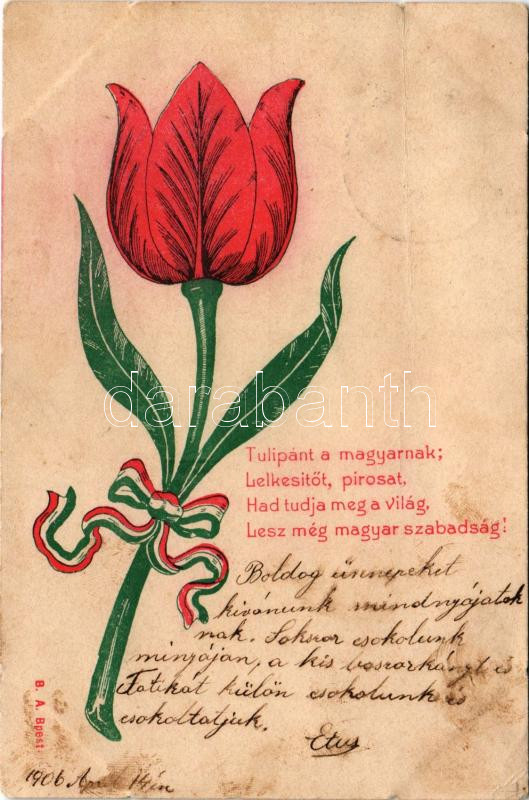 Tulipánt a magyarnak;
Lelkesitőt, pirosat,
Had tudja meg a világ,
Lesz még magyar szabadság!
Boldog ünnepeket
kivánunk mindnyájatok
nak. Sokszor csokolunk
minyájan, a kis boszorkányt és
Tatikát külön csokolunk és
csokoltatjuk.
Etus
B. A. Bpest.
1906 April 14én
darabanth